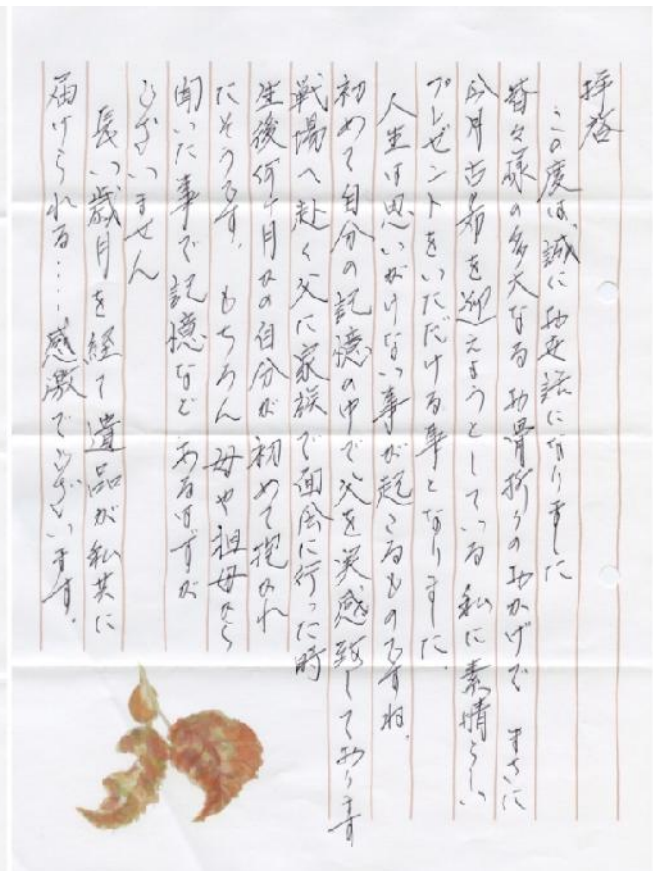 拝啓
この度は、誠にお世話になりました
皆々様の多大なる お骨折りのおかげで まさに
今月古希を迎えようとしている 私に素晴らしい
プレゼントをいただける事となりました。
人生は思いがけない事が起こるものですね。
初めて自分の記憶の中で父を実感致しております
戦場へ赴く父に家族で面会に行った時
生後何ヶ月かの自分が 初めて抱かれ
たそうです。 もちろん 母や祖母から
聞いた事で記憶など あるはずが
ございません
長い歳月を経て 遺品が私共に
届けられる・・・・感激でございます。